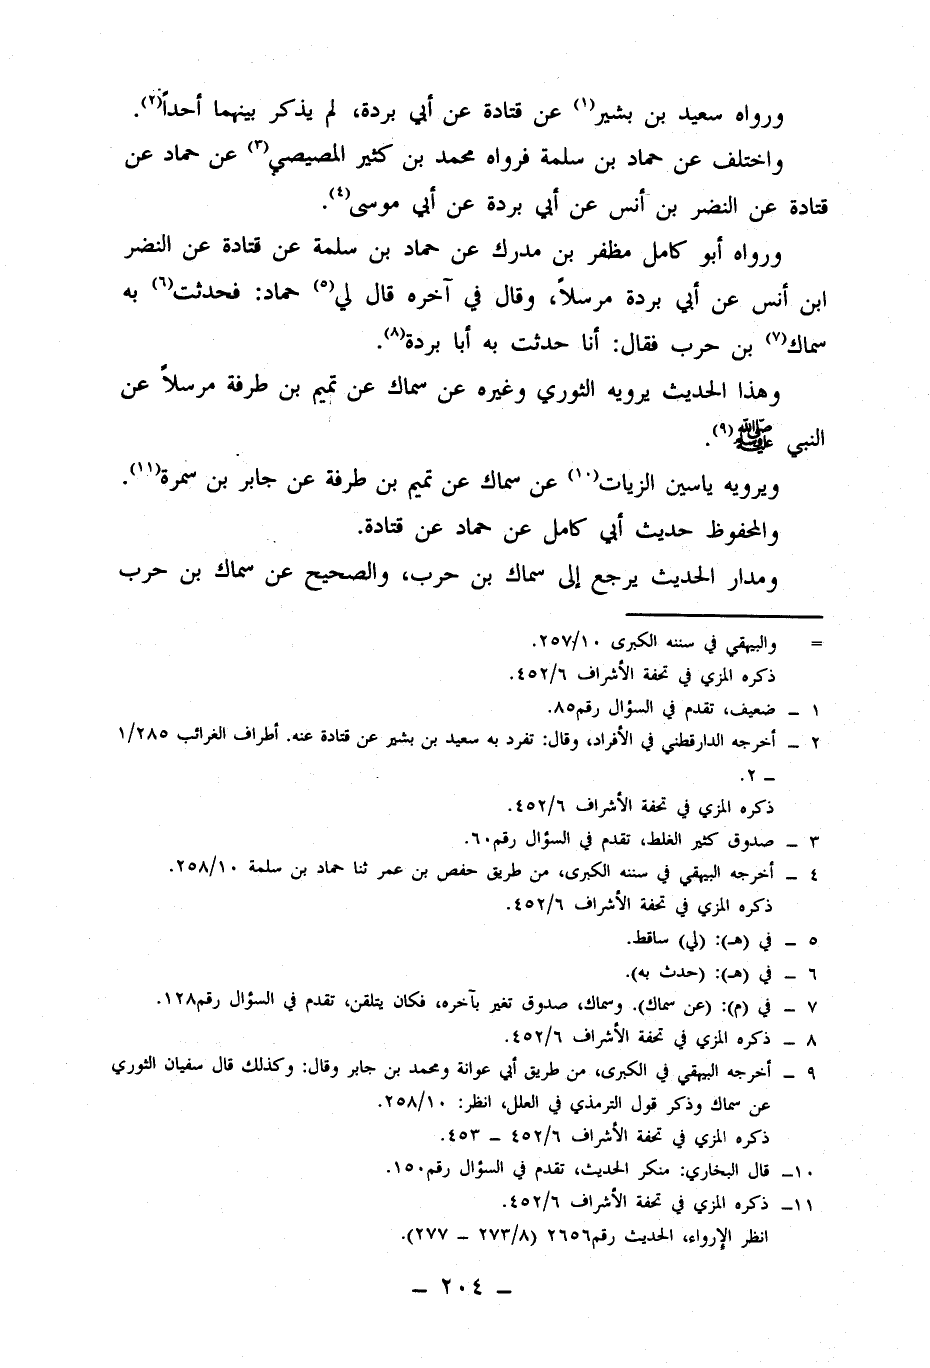 ورواه سعيد بن بشير(١) عن قتادة عن أبي بردة، لم يذكر بينهما أحداً(٢).
واختلف عن حماد بن سلمة فرواه محمد بن كثير المصيصي(٣) عن حماد عن
قتادة عن النضر بن أنس عن أبي بردة عن أبي موسى(٤).
ورواه أبو كامل مظفر بن مدرك عن حماد بن سلمة عن قتادة عن النضر
ابن أنس عن أبي بردة مرسلاً، وقال في آخره قال لي(٥) حماد: فحدثت(٦) به
سماك(٧) بن حرب فقال: أنا حدثت به أبا بردة(٨).
وهذا الحديث يرويه الثوري وغيره عن سماك عن تميم بن طرفة مرسلاً عن
النبي ﷺ(٩).
ويرويه ياسين الزيات(١٠) عن سماك عن تميم بن طرفة عن جابر بن سمرة(١١).
والمحفوظ حديث أبي كامل عن حماد عن قتادة.
ومدار الحديث يرجع إلى سماك بن حرب، والصحيح عن سماك بن حرب
= والبيهقي في سننه الكبرى ٢٥٧/١٠.
ذكره المزي في تحفة الأشراف ٤٥٢/٦.
١ ـ ضعيف، تقدم في السؤال رقم٨٥.
٢ ـ أخرجه الدارقطني في الأفراد، وقال: تفرد به سعيد بن بشير عن قتادة عنه. أطراف الغرائب ١/٢٨٥
ـ ٢.
ذكره المزي في تحفة الأشراف ٤٥٢/٦.
٣ ـ صدوق كثير الغلط، تقدم في السؤال رقم٦٠.
٤ ـ أخرجه البيهقي في سننه الكبرى، من طريق حفص بن عمر ثنا حماد بن سلمة ٢٥٨/١٠.
ذكره المزي في تحفة الأشراف ٤٥٢/٦.
٥ ـ في (هـ): (لي) ساقط.
٦ ـ في (هـ): (حدث به).
٧ ـ في (م): (عن سماك). وسماك، صدوق تغير بآخره، فكان يتلقن، تقدم في السؤال رقم١٢٨.
٨ ـ ذكره المزي في تحفة الأشراف ٤٥٢/٦.
٩ ـ أخرجه البيهقي في الكبرى، من طريق أبي عوانة ومحمد بن جابر وقال: وكذلك قال سفيان الثوري
عن سماك وذكر قول الترمذي في العلل، انظر: ٢٥٨/١٠.
ذكره المزي في تحفة الأشراف ٤٥٢/٦ ـ ٤٥٣.
١٠ـ قال البخاري: منكر الحديث، تقدم في السؤال رقم١٥٠.
١١ـ ذكره المزي في تحفة الأشراف ٤٥٢/٦.
انظر الإرواء، الحديث رقم٢٦٥٦ (٢٧٣/٨ ـ ٢٧٧).
ـ ٢٠٤ ـ